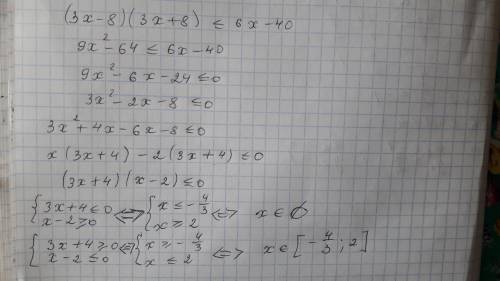 (3x-8)(3x+8) ≤ 6x-40
9x²-64 ≤ 6x-40
9x²-6x-24≤0
3x²-2x-8 ≤0
3x²+4x-6x-8≤0
x(3x+4)-2(3x+4)≤0
(3x+4)(x-2)≤0
{3x+4≤0 x-2≥0 <=> {x≤-4/3 x≥2 <=> x∈∅
{3x+4≥0 x-2≤0 <=> {x≥-4/3 x≤2 <=> x∈[-4/3;2]